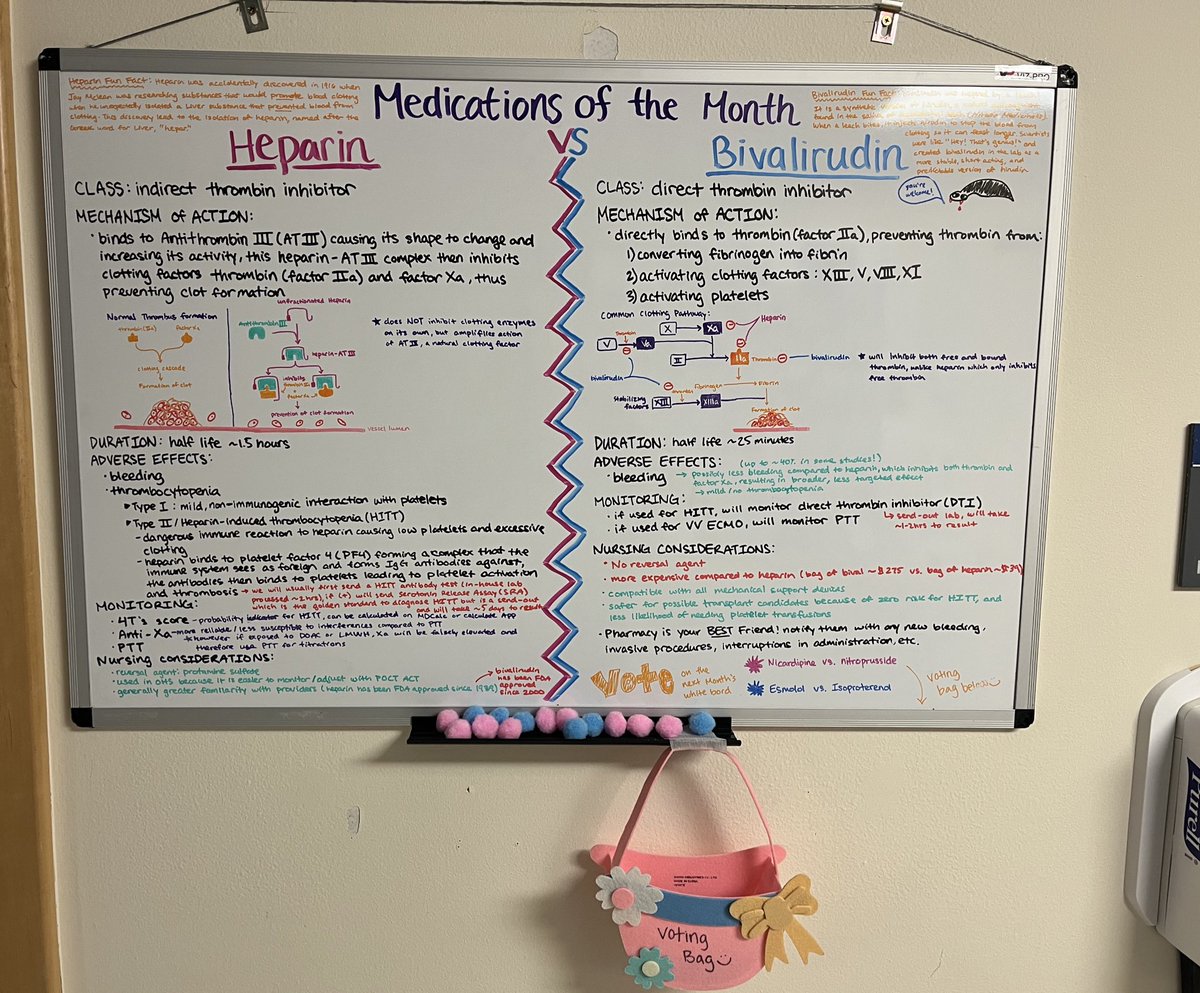 Heparin Fun Fact: Heparin was accidentally discovered in 1916 when
Jay McLean was researching substances that would promote blood clotting
when he unexpectedly isolated a liver substance that prevented blood from
clotting. This discovery lead to the isolation of heparin, named after the
Greek word for liver, "hepar"
Medications of the Month
Bivalirudin Fun Fact:
It is a synthetic
found in the
When a leech bites, it injects hirudin to stop the blood from
clotting so it can feast longer. Scientists
were like "Hey! That's genius!" and
created bivalirudin in the lab as a
more stable, short acting, and
predictable version of hirudin
you're
welcome!
VS
Heparin
CLASS: indirect thrombin inhibitor
MECHANISM of ACTION:
• binds to Antithrombin III (AT III) causing its shape to change and
increasing its activity, this heparin-AT III complex then inhibits
clotting factors thrombin (factor IIa) and factor Xa, thus
preventing clot formation
Normal Thrombus formation
thrombin (IIa)
factor Xa
clotting cascade
formation of clot
unfractionated Heparin
Antithrombin III
heparin-AT III
inhibits
thrombin IIa
+
factor Xa
prevention of clot formation
vessel lumen
★ does NOT inhibit clotting enzymes
on its own, but amplifies action
of AT III, a natural clotting factor
DURATION: half life ~1.5 hours
ADVERSE EFFECTS:
• bleeding
• thrombocytopenia
▸ Type I: mild, non-immunogenic interaction with platelets
▸ Type II / Heparin-Induced thrombocytopenia (HITT)
- dangerous immune reaction to heparin causing low platelets and excessive
clotting
- heparin binds to platelet factor 4 (PF4) forming a complex that the
immune system sees as foreign and forms IgG antibodies against,
the antibodies then binds to platelets leading to platelet activation
and thrombosis → we will usually first send a HITT antibody test (in-house lab
processed ~2hrs), if (+) will send Serotonin Release Assay (SRA)
which is the golden standard to diagnose HITT but is a send-out
and will take ~5 days to result
MONITORING:
• 4T's score - probability indicator for HITT, can be calculated on MDCalc or calculate App
• Anti-Xa - more reliable / less susceptible to interferences compared to PTT
↳ however if exposed to DOAC or LMWH, Xa will be falsely elevated and
therefore use PTT for titrations
• PTT
Nursing considerations:
• reversal agent: protamine sulfate
• used in OHS because it is easier to monitor/adjust with POCT ACT
• generally greater familiarity with providers (heparin has been FDA approved since 1939)
bivalirudin
has been FDA
approved
since 2000
Bivalirudin
CLASS: direct thrombin inhibitor
MECHANISM of ACTION:
• directly binds to thrombin (factor IIa), preventing thrombin from:
1) converting fibrinogen into fibrin
2) activating clotting factors: XIII, V, VIII, XI
3) activating platelets
Common Clotting Pathway:
X
Xa
Heparin
Thrombin
V
Va
II
IIa
Thrombin
bivalirudin
bivalirudin
Fibrinogen
Fibrin
Stabilizing
factors
XIII
XIIIa
Formation of clot
★ will inhibit both free and bound
thrombin, unlike heparin which only inhibits
free thrombin
DURATION: half life ~25 minutes
ADVERSE EFFECTS: (up to ~40% in some studies!)
• bleeding → possibly less bleeding compared to heparin, which inhibits both thrombin and
factor Xa, resulting in broader, less targeted effect
→ mild/no thrombocytopenia
MONITORING:
• if used for HITT, will monitor direct thrombin inhibitor (DTI)
• if used for VV ECMO, will monitor PTT
↳ send-out lab, will take
~1-2hrs to result
NURSING CONSIDERATIONS:
• No reversal agent
• more expensive compared to heparin (bag of bival ~$275 vs. bag of heparin ~$39)
• compatible with all mechanical support devices
• safer for possible transplant candidates because of zero risk for HITT, and
less likelihood of needing platelet transfusions
• Pharmacy is your BEST Friend! notify them with any new bleeding,
invasive procedures, interruptions in administration, etc.
Vote
on the
next Month's
white board
Nicardipine vs. nitroprusside
Esmolol vs. Isoproterenol
Voting
bag below
Voting
Bag
Purell